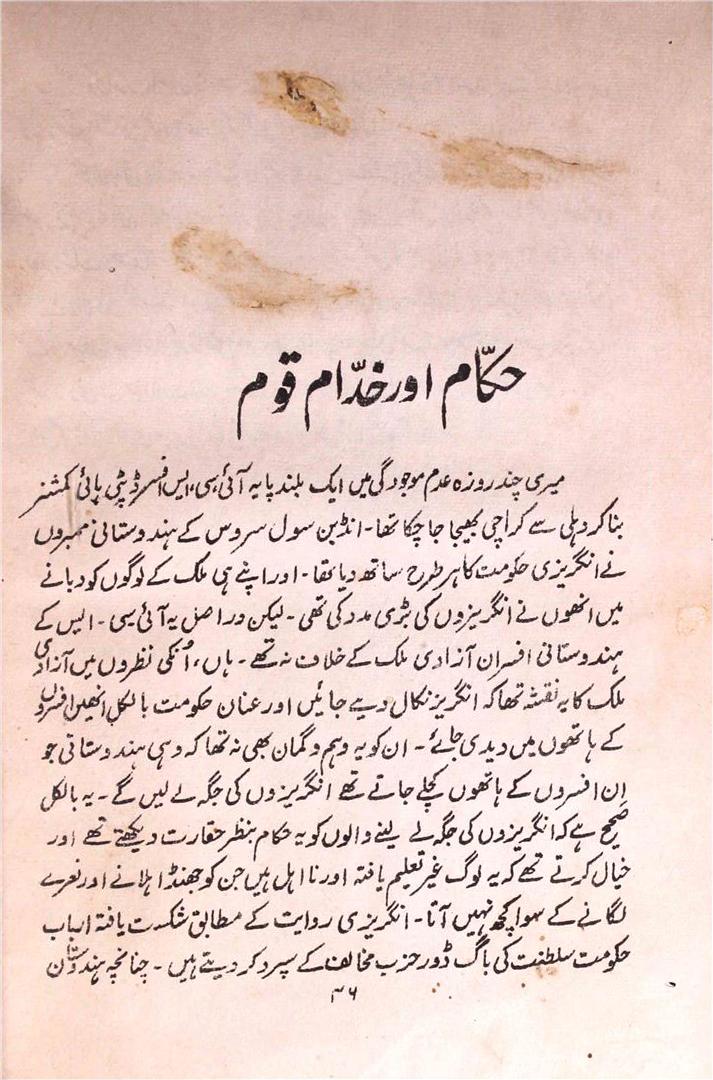 حکّام اور خدّام قوم
میری چند روزہ عدم موجودگی میں ایک بلند پایہ آئی،سی،ایس افسر ڈپٹی ہائی کمشنر
بنا کر دہلی سے کراچی بھیجا جا چکا تھا۔ انڈین سول سروس کے ہندوستانی ممبروں
نے انگریزی حکومت کا ہر طرح ساتھ دیا تھا۔ اور اپنے ہی ملک کے لوگوں کو دبانے
میں انھوں نے انگریزوں کی بڑی مدد کی تھی۔ لیکن دراصل یہ آئی سی۔ ایس کے
ہندوستانی افسران آزادی ملک کے خلاف نہ تھے۔ ہاں، اُنکی نظروں میں آزادی
ملک کا یہ نقشہ تھا کہ انگریز نکال دیے جائیں اور عنان حکومت بالکل انھیں افسروں
کے ہاتھوں میں دیدی جائے۔ ان کو یہ وہم و گمان بھی نہ تھا کہ وہی ہندوستانی جو
اِن افسروں کے ہاتھوں کچلے جاتے تھے انگریزوں کی جگہ لے لیں گے۔ یہ بالکل
صحیح ہے کہ انگریزوں کی جگہ لے لینے والوں کو یہ حکام بنظر حقارت دیکھتے تھے اور
خیال کرتے تھے کہ یہ لوگ غیر تعلیم یافتہ اور نا اہل ہیں جن کو جھنڈا ہلانے اور نعرے
لگانے کے سوا کچھ نہیں آتا۔ انگریزی روایت کے مطابق شکست یافتہ ارباب
حکومت سلطنت کی باگ ڈور حزب مخالف کے سپرد کر دیتے ہیں۔ چنانچہ ہندوستان
۴۶